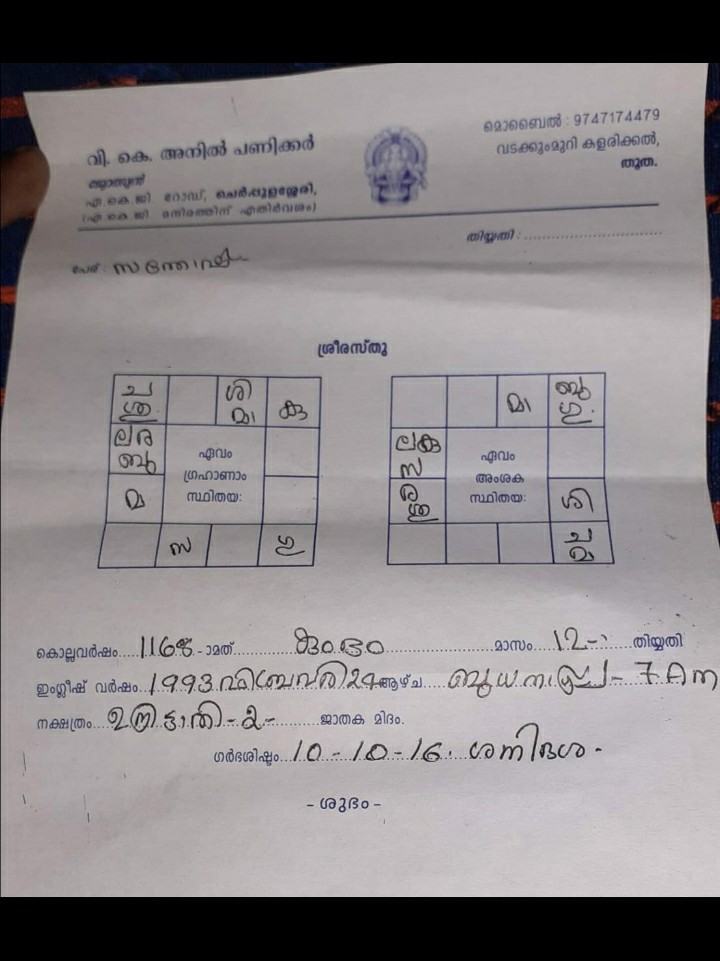 വി. കെ. അനിൽ പണിക്കർ
ജ്യോത്സ്യൻ
എ.കെ.ജി. റോഡ്, ചെർപ്പുളശ്ശേരി,
(എ.കെ.ജി. മന്ദിരത്തിന് എതിർവശം)
മൊബൈൽ : 9747174479
വടക്കുംമുറി കളരിക്കൽ,
തൂത.
തിയ്യതി : ..............................
പേര് : സന്തോഷ്
ശ്രീരസ്തു
ച ശു ശി മാ കു
ല ര ബു
മ
സ ഗു
ഏവം
ഗ്രഹാണാം
സ്ഥിതയ:
മാ ബു ഗു
ല കു സ
ര ശു ശി
ച മ
ഏവം
അംശക
സ്ഥിതയ:
കൊല്ലവർഷം.....1168-ാമത്...............കുംഭം.........................മാസം....12-.....തിയ്യതി
ഇംഗ്ലീഷ് വർഷം...1993 ഫിബ്രവരി 24 ആഴ്ച.... ബുധനാഴ്ച - 7 Am
നക്ഷത്രം...ഉത്രട്ടാതി - 2 -..........ജാതക മിദം.
ഗർഭശിഷ്ടം...10 - 10 - 16. ശനിദശ -
- ശുഭം -